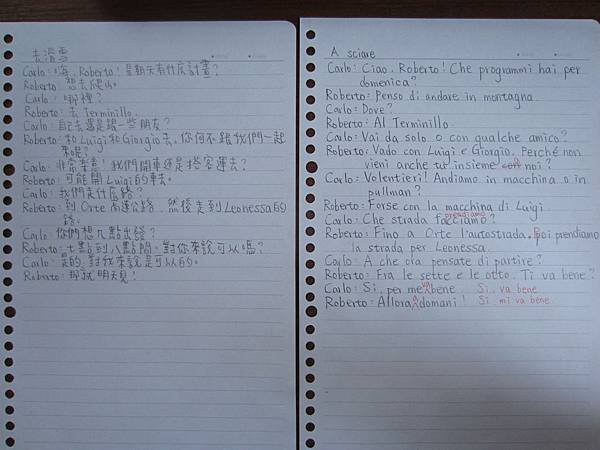 去滑雪
Carlo: 嗨, Roberto! 星期天有什麼計畫?
Roberto: 想去爬山。
Carlo: 哪裡?
Roberto: 去 Terminillo.
Carlo: 自己去還是跟一些朋友?
Roberto: 和Luigi和Giorgio去。你何不跟我們一起
來呢?
Carlo: 非常樂意! 我們開車還是搭客運去?
Roberto: 可能開Luigi的車去。
Carlo: 我們走什麼路?
Roberto: 到 Orte 高速公路, 然後走到Leonessa的
路.
Carlo: 你們想几點出發?
Roberto: 七點到八點間。對你來說可以嗎?
Carlo: 是的, 對我來說是可以的。
Roberto: 那就明天見!
A sciare
Carlo: Ciao, Roberto! Che programmi hai per
domenica?
Roberto: Penso di andare in montagna.
Carlo: Dove?
Roberto: Al Terminillo.
Carlo: Vai da solo o con qualche amico?
Roberto: Vado con Luigi e Giorgio. Perché non
vieni anche tu insieme con noi?
Carlo: Volentieri! Andiamo in macchina o in
pullman?
Roberto: Forse con la macchina di Luigi.
prendiamo
Carlo: Che strada facciamo?
Roberto: Fino a Orte l'autostrada. Poi prendiamo
la strada per Leonessa.
Carlo: A che ora pensate di partire?
Roberto: Fra le sette e le otto. Ti va bene?
va
Carlo: Sì, per me bene. Sì, va bene
a
Roberto: Allora domani! Sì, mi va bene